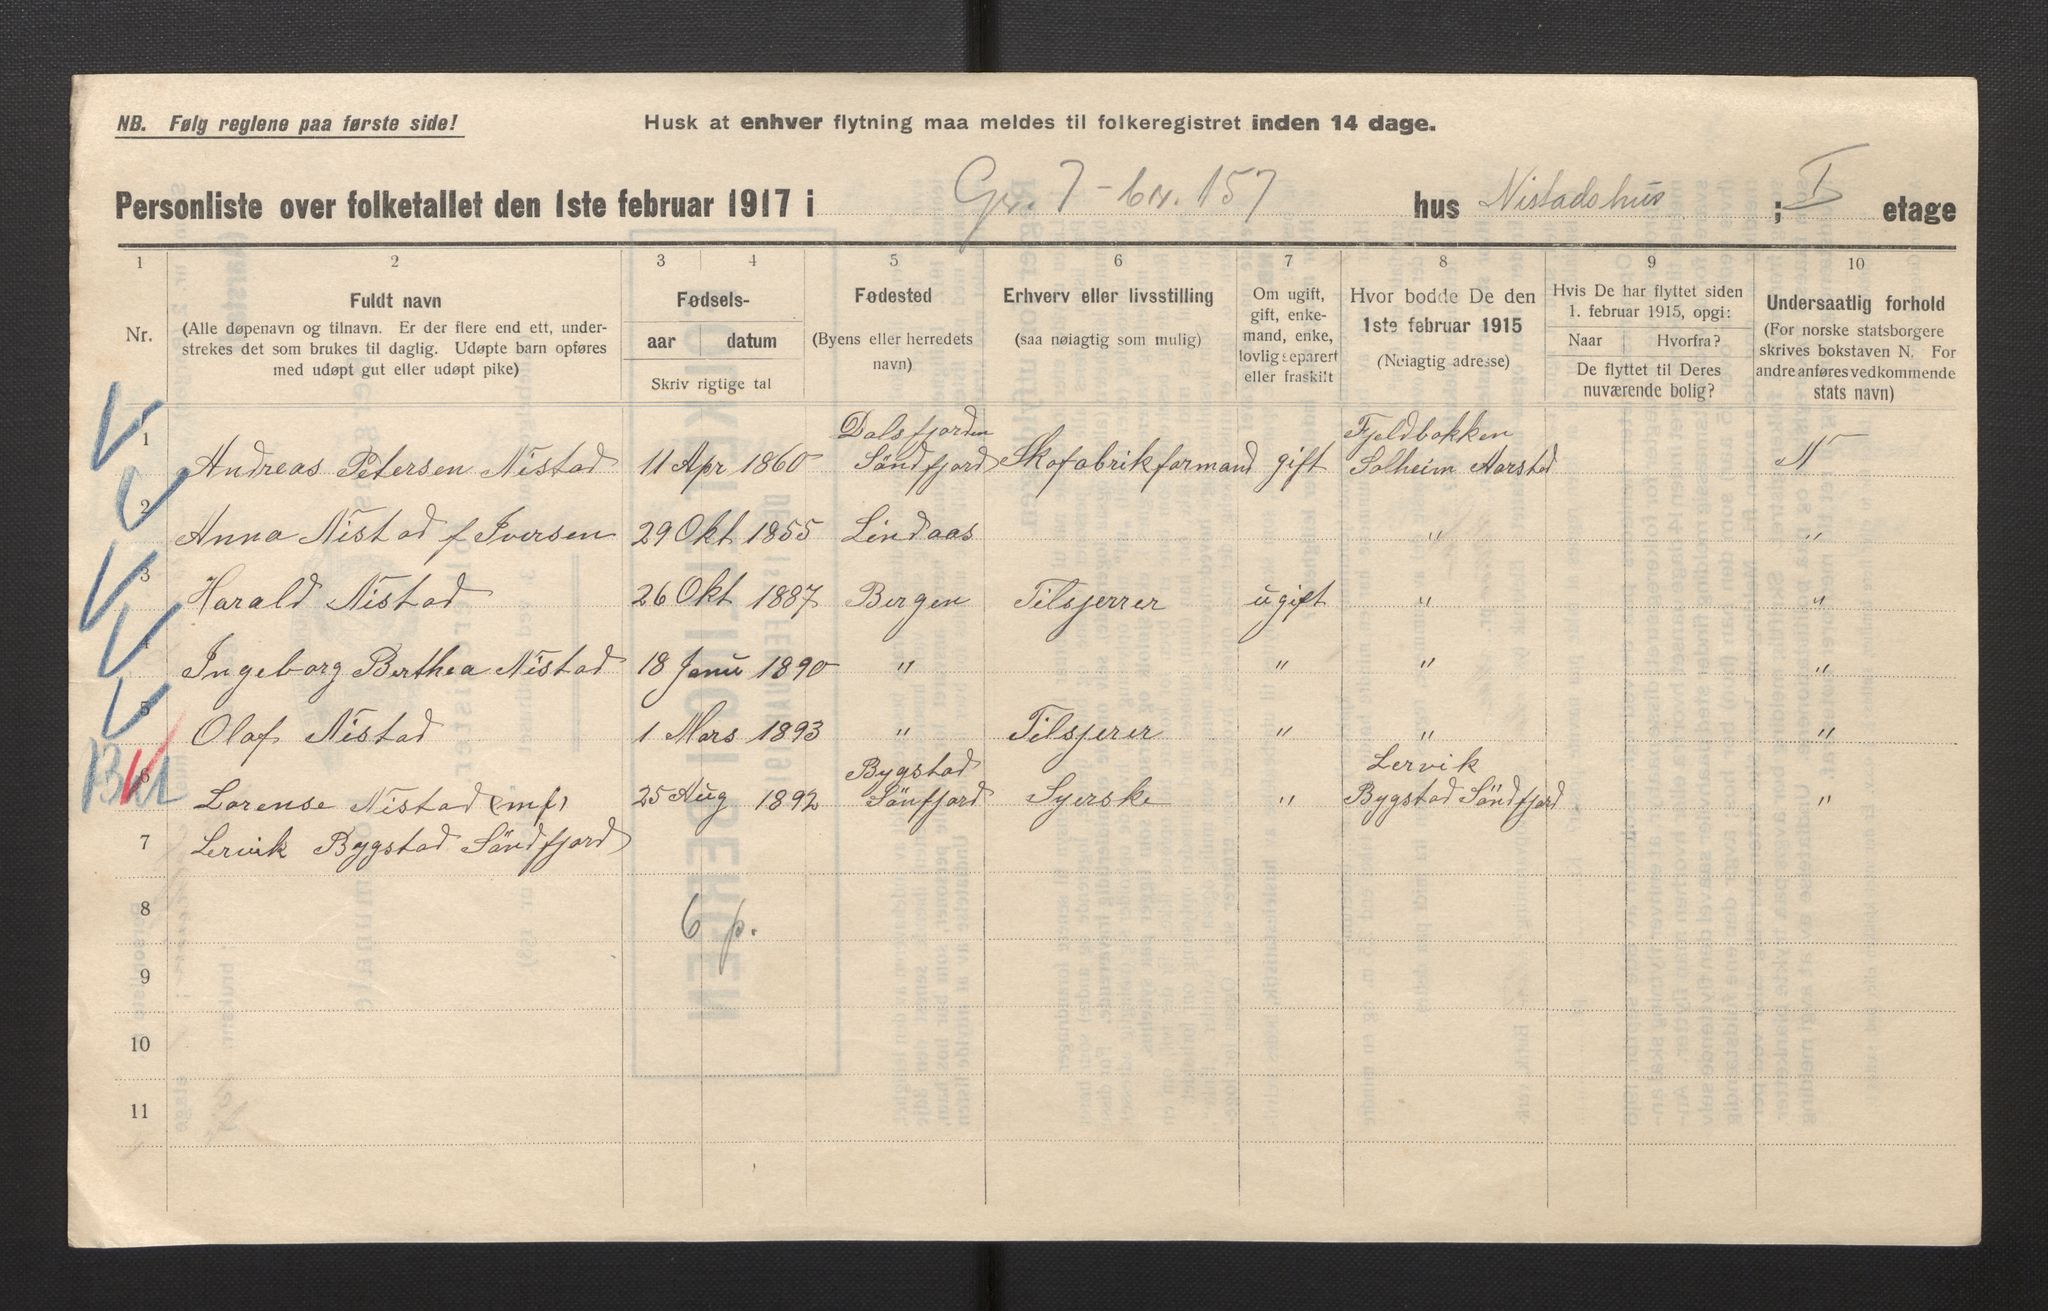 NB. Følg reglene paa første side!
Husk at enhver flytning maa meldes til folkeregistret inden 14 dage.
Personliste over folketallet den 1ste februar 1917 i Gr. 7 - br. 157 hus Nistadshus ; I etage
1 2 3 4 5 6 7 8 9 10
Nr.
Fuldt navn
(Alle døpenavn og tilnavn. Er der flere end ett, under-
strekes det som brukes til daglig. Udøpte barn opføres
med udøpt gut eller udøpt pike)
Fødsels-
aar datum
Skriv rigtige tal
Fødested
(Byens eller herredets
navn)
Erhverv eller livsstilling
(saa nøiagtig som mulig)
Om ugift,
gift, enke-
mand, enke,
lovlig separert
eller fraskilt
Hvor bodde De den
1ste februar 1915
(Nøiagtig adresse)
Hvis De har flyttet siden
1. februar 1915, opgi:
Naar Hvorfra?
De flyttet til Deres
nuværende bolig?
Undersaatlig forhold
(For norske statsborgere
skrives bokstaven N. For
andre anføres vedkommende
stats navn)
Dalsfjorden Fjeldbakken
1 Andreas Petersen Nistad 11 Apr 1860 Søndfjord Skofabrikformand gift Solheim Aarstad N
2 Anna Nistad f Iversen 29 Okt 1855 Lindaas " "
3 Harald Nistad 26 Okt 1887 Bergen Tilsjerrer ugift " "
4 Ingeborg Berthea Nistad 18 Janu 1890 " " " "
5 Olaf Nistad 1 Mars 1893 " Tilsjerer " " "
Bygstad Lervik
6 Lorense Nistad (mf) 25 Aug 1892 Sönfjord Syerske " Bygstad Söndfjord "
7 Lervik Bygstad Söndfjord
8 6 p.
9
10
11